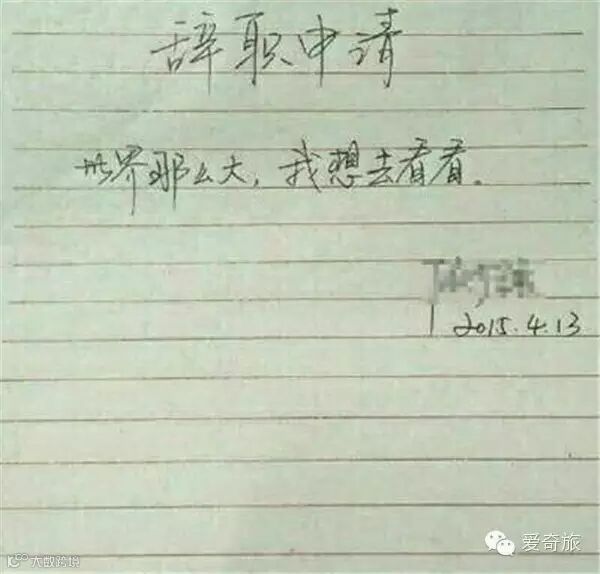 辞职申请
世界那么大，我想去看看。
2015.4.13
爱奇旅
大数跨境